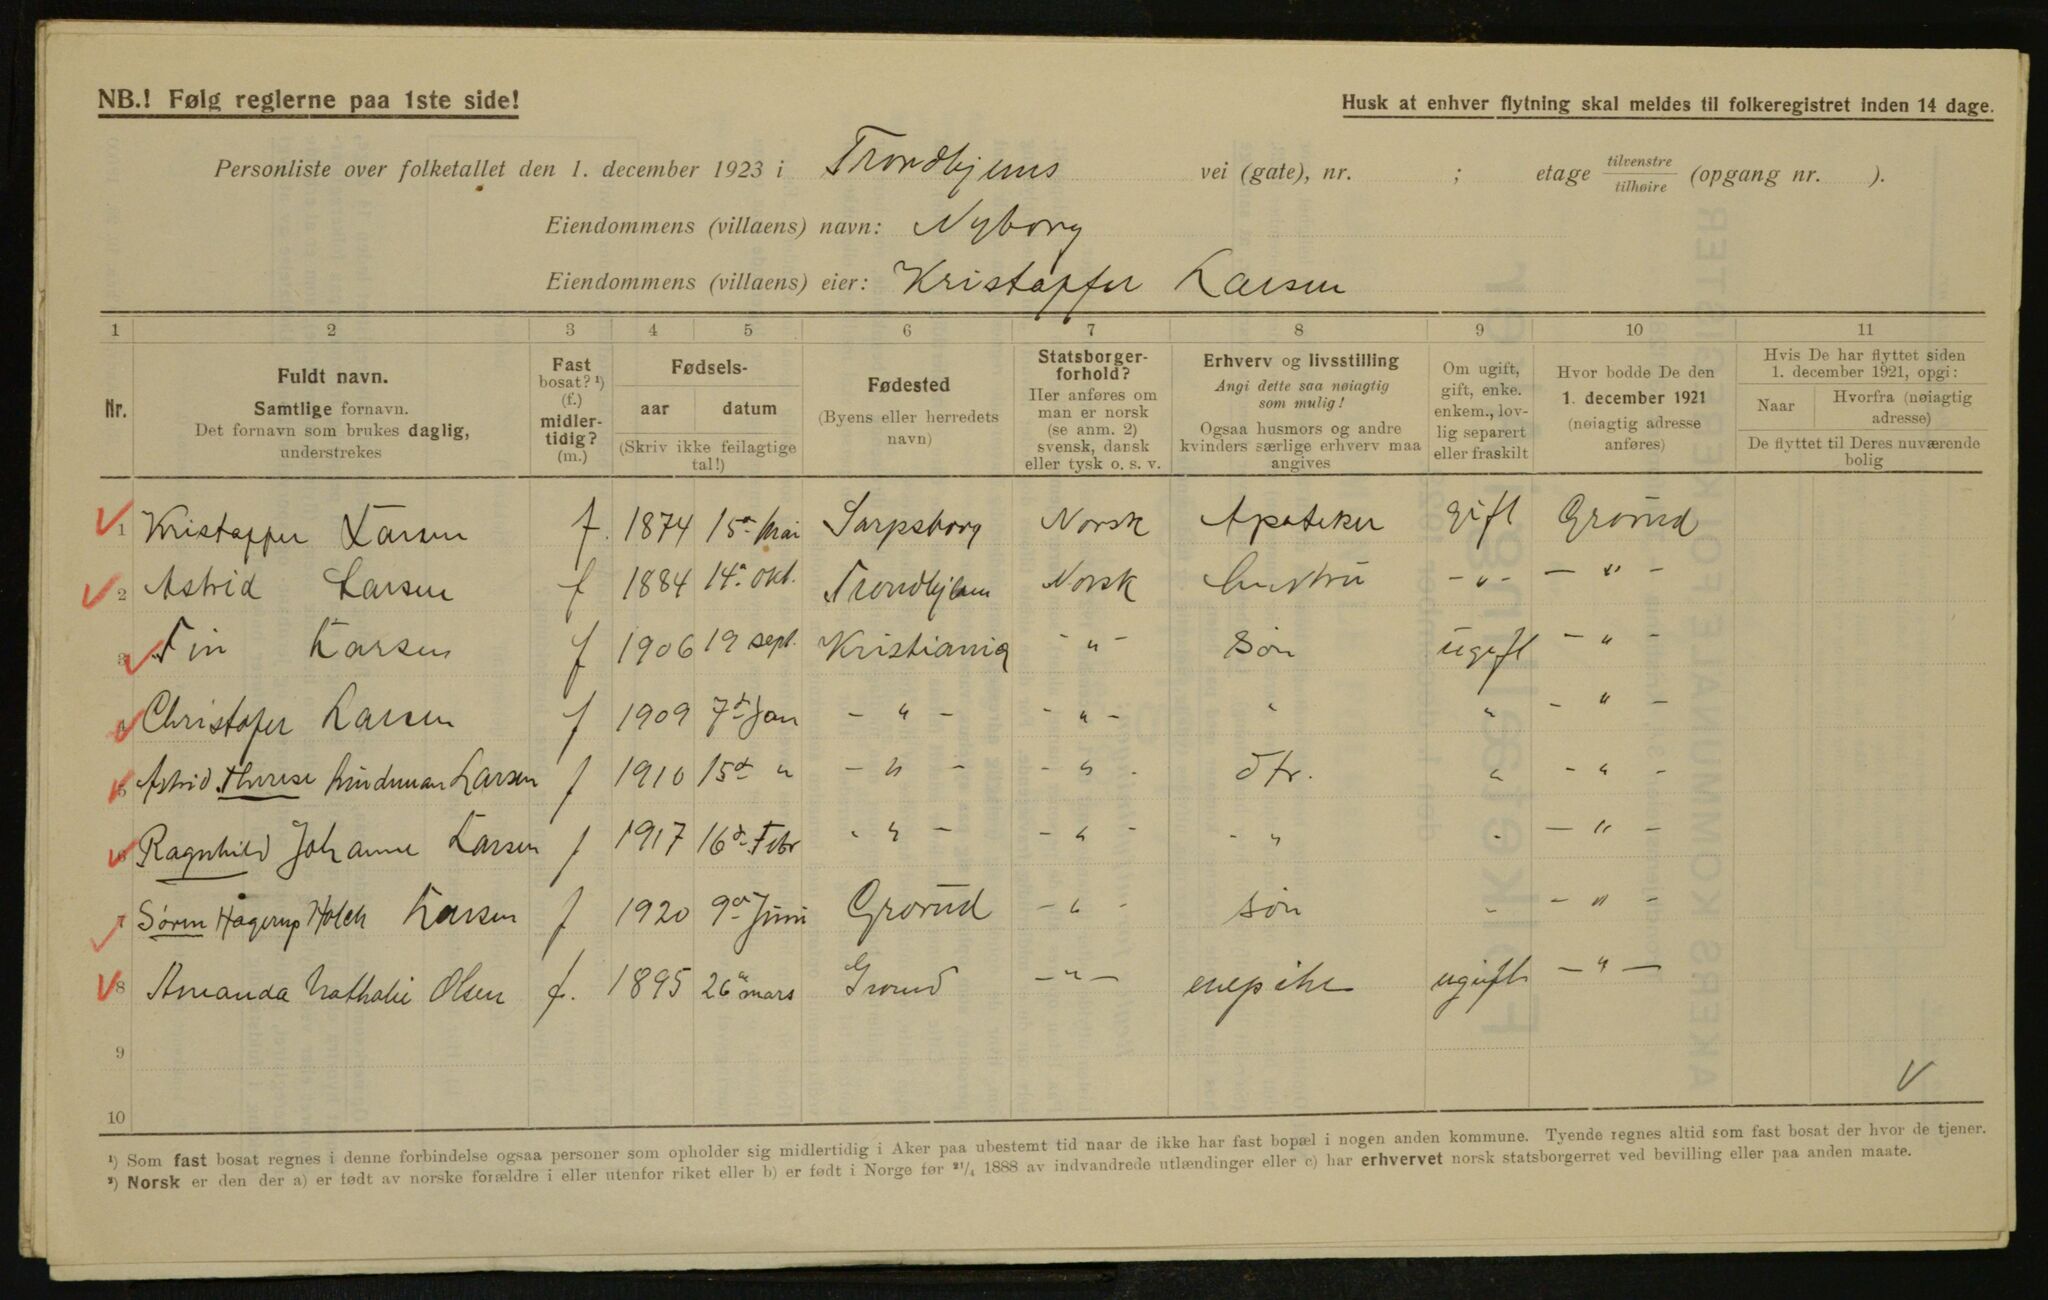 NB.! Følg reglerne paa 1ste side!
Husk at enhver flytning skal meldes til folkeregistret inden 14 dage.
Personliste over folketallet den 1. december 1923 i Trondhjems vei (gate), nr. ; etage tilvenstre/tilhøire (opgang nr. ).
Eiendommens (villaens) navn: Nyborg
Eiendommens (villaens) eier: Kristapfer Larsen
1 2 3 4 5 6 7 8 9 10 11
Nr.
Fuldt navn.
Samtlige fornavn.
Det fornavn som brukes daglig,
understrekes
Fast
bosat? ¹)
(f.)
midler-
tidig?
(m.)
Fødsels-
aar datum
(Skriv ikke feilagtige
tal!)
Fødested
(Byens eller herredets
navn)
Statsborger-
forhold?
Her anføres om
man er norsk
(se anm. 2)
svensk, dansk
eller tysk o. s. v.
Erhverv og livsstilling
Angi dette saa nøiagtig
som mulig!
Ogsaa husmors og andre
kvinders særlige erhverv maa
angives
Om ugift,
gift, enke.
enkem., lov-
lig separert
eller fraskilt
Hvor bodde De den
1. december 1921
(nøiagtig adresse
anføres)
Hvis De har flyttet siden
1. december 1921, opgi:
Naar Hvorfra (nøiagtig
adresse)
De flyttet til Deres nuværende
bolig
1 Kristapfer Larsen f. 1874 15de Mai Sarpsborg Norsk Apoteker gift Grorud
2 Astrid Larsen f 1884 14de Okt. Trondhjem Norsk hustru - " - - " -
3 Fin Larsen f 1906 19 sept. Kristiania - " - Søn ugift - " -
4 Christofer Larsen f 1909 7de Jan - " - - " - " " - " -
5 Astrid Therese Lindeman Larsen f 1910 15de " - " - - " - dtr. " - " -
6 Ragnhild Johanne Larsen f 1917 16de Febr - " - - " - - " - " -
7 Søren Hagerup Holck Larsen f 1920 9de Juni Grorud - " - søn " - " -
8 Amanda Nathalie Olsen f. 1895 26de mars Grorud - " - enepike ugift - " -
9
10
¹) Som fast bosat regnes i denne forbindelse ogsaa personer som opholder sig midlertidig i Aker paa ubestemt tid naar de ikke har fast bopæl i nogen anden kommune. Tyende regnes altid som fast bosat der hvor de tjener.
²) Norsk er den der a) er født av norske forældre i eller utenfor riket eller b) er født i Norge før ²¹/₄ 1888 av indvandrede utlændinger eller c) har erhvervet norsk statsborgerret ved bevilling eller paa anden maate.